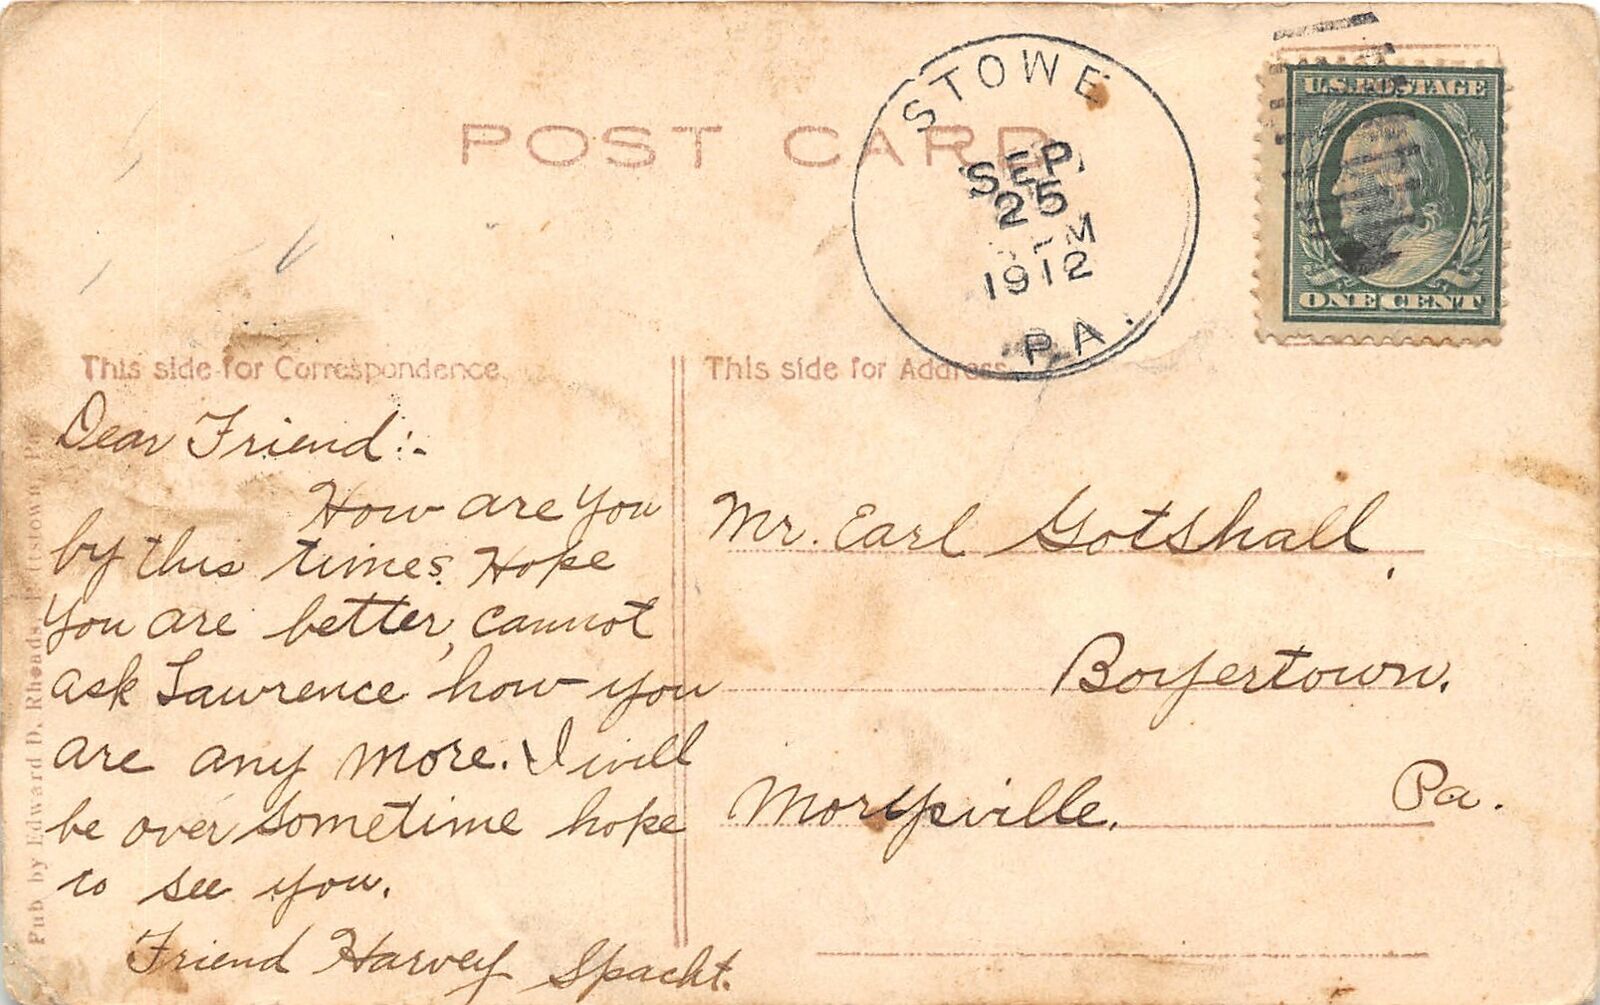 POST CARD
STOWE
SEP.
25
M
1912
PA.
U.S. POSTAGE
ONE CENT
This side for Correspondence.
This side for Address
Dear Friend:-
How are you
by this times. Hope
you are better, cannot
ask Lawrence how you
are any more. I will
be over sometime hope
to see you.
Friend Harvey Spacht.
Mr. Earl Gotshall,
Boyertown.
Morysville. Pa.
Pub by Edward D. Rhoads, Pottstown, Pa.